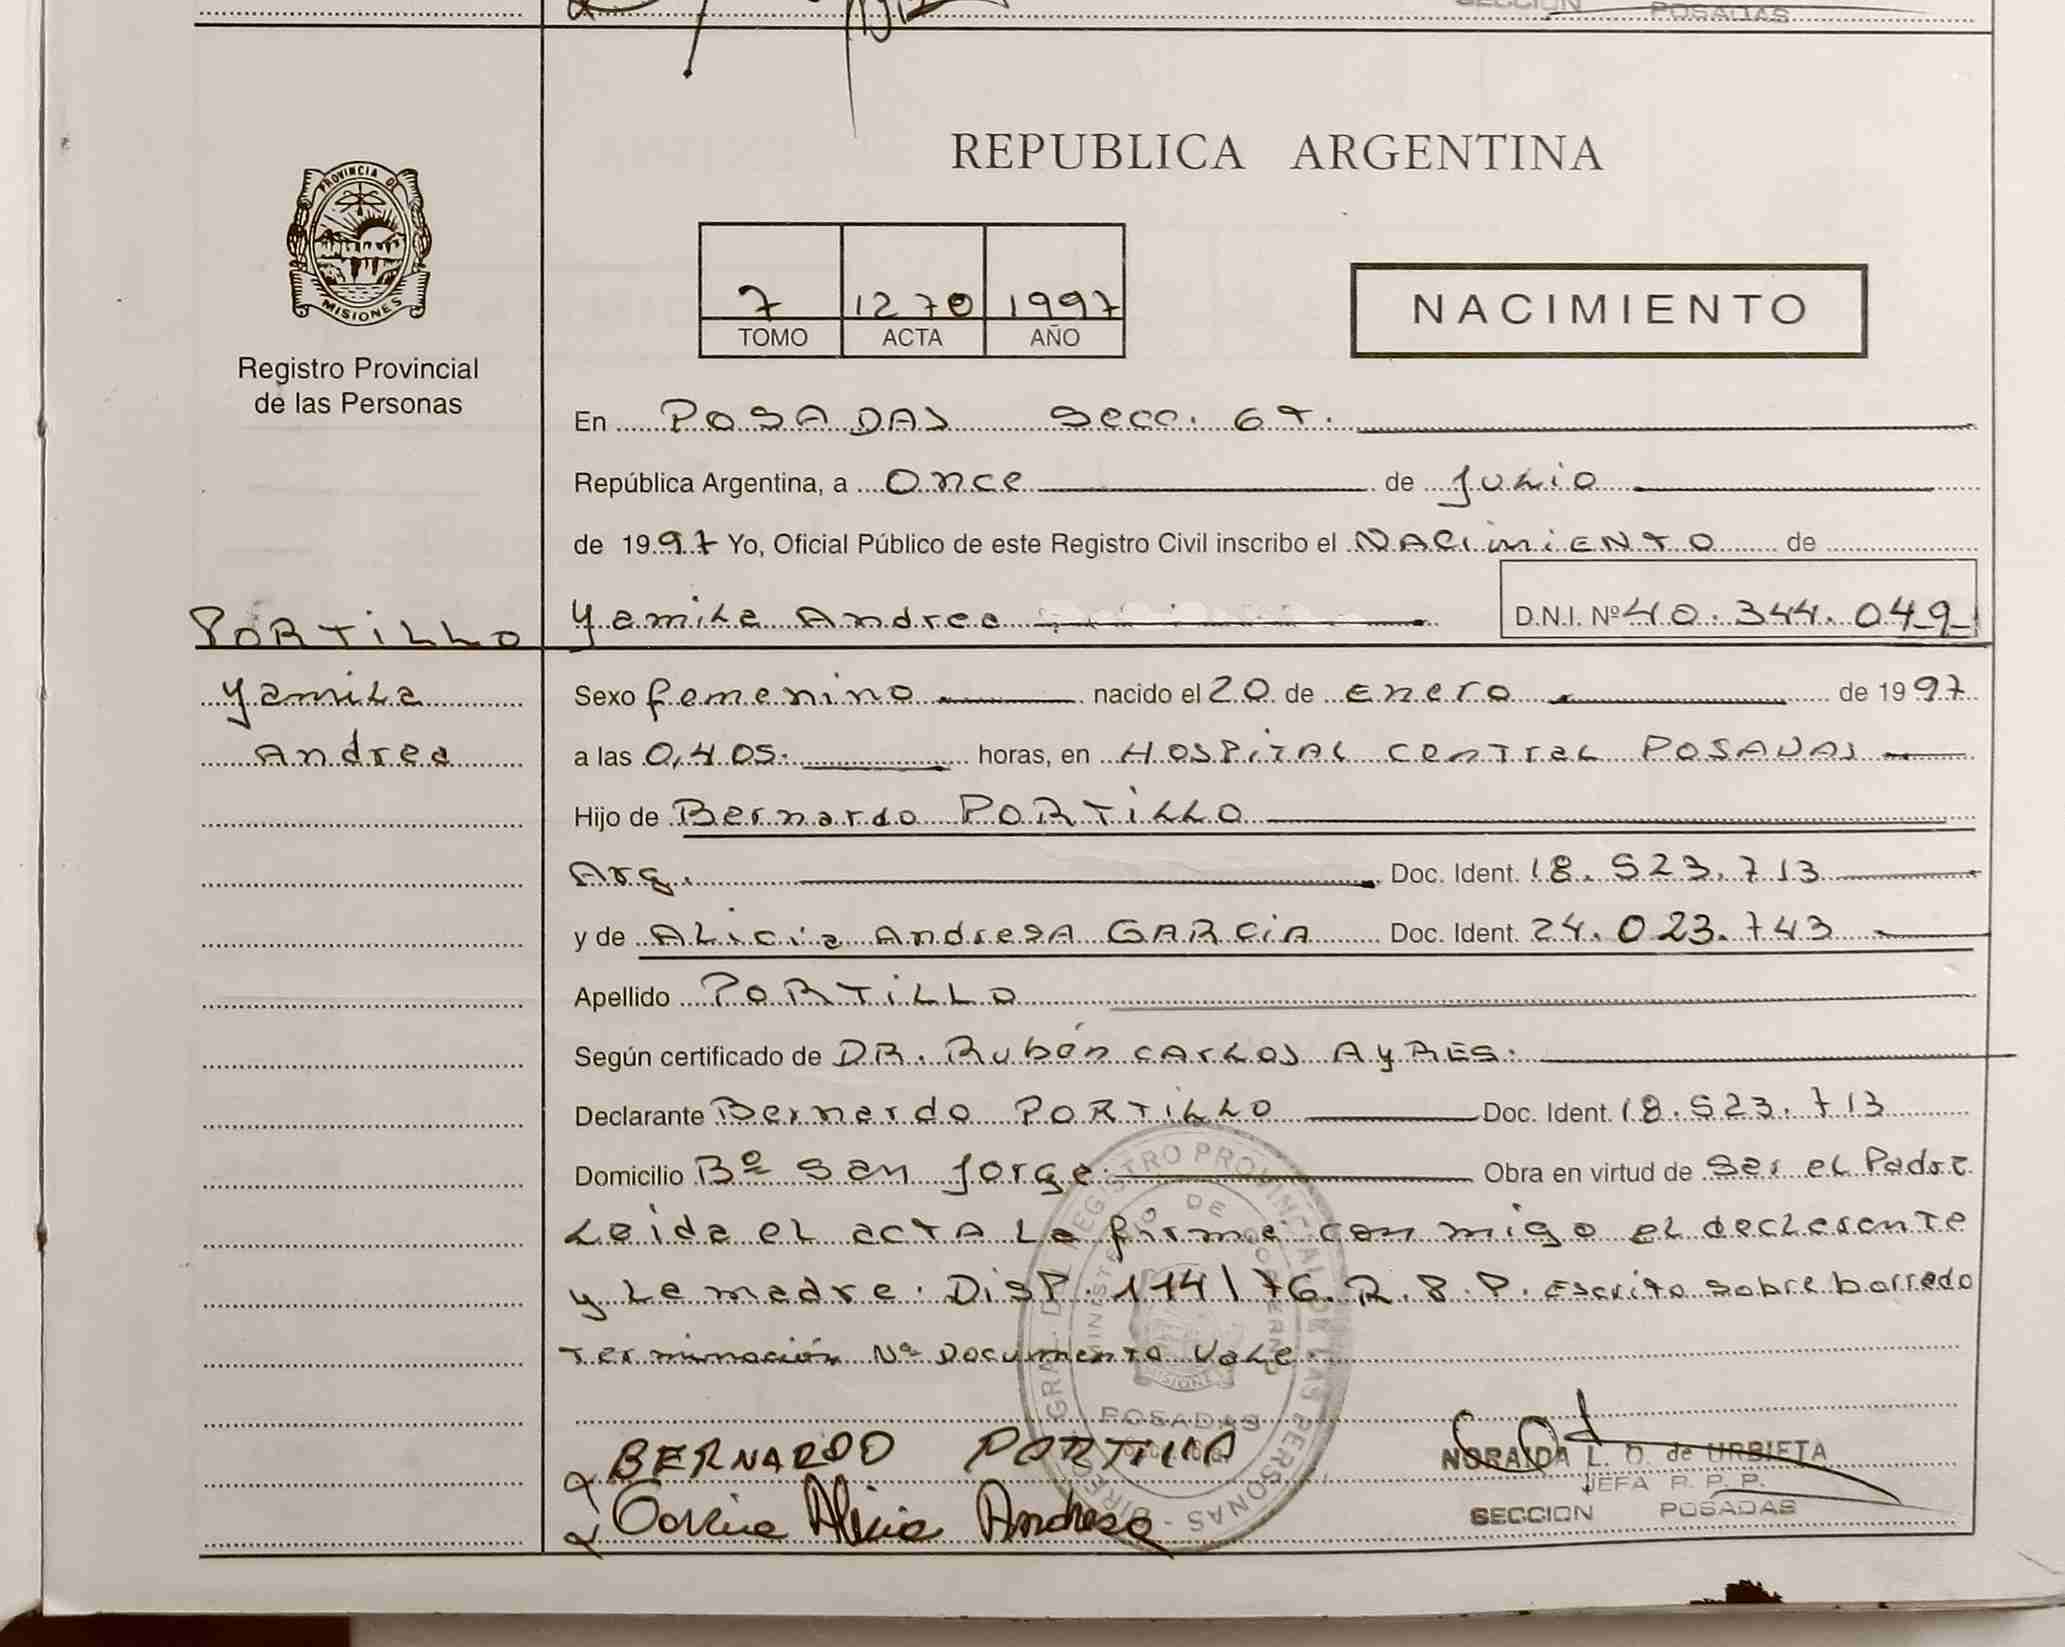 SECCION POSADAS
REPUBLICA ARGENTINA
PROVINCIA DE
MISIONES
Registro Provincial
de las Personas
7 1270 1997
TOMO ACTA AÑO
NACIMIENTO
En POSADAS Secc. 6ª.
República Argentina, a Once de Junio
de 1997 Yo, Oficial Público de este Registro Civil inscribo el NACIMIENTO de
PORTILLO
Yamila Andrea D.N.I. Nº 40.344.049
Yamila
Andrea
Sexo femenino nacido el 20 de Enero de 1997
a las 0,405. horas, en HOSPITAL CENTRAL POSADAS
Hijo de Bernardo PORTILLO
Arg. Doc. Ident. 18.523.713
y de Alicia Andresa GARCIA Doc. Ident. 24.023.743
Apellido PORTILLO
Según certificado de DR. Rubén Carlos AYRES.
Declarante Bernardo PORTILLO Doc. Ident. 18.523.713
Domicilio Bº San Jorge. Obra en virtud de Ser el Padre
Leida el acta la firma con migo el declarante
y la madre. DISP. 114/76.R.8.P. Escrito sobre borrado
Terminación Nº Documento Vale.
BERNARDO PORTILLO
Garcia Alicia Andresa
NORAIDA L. O. de URBIETA
JEFA R. P. P.
SECCION POSADAS
DIREC. GRAL. DEL REGISTRO PROVINCIAL DE LAS PERSONAS
MINISTERIO DE GOBIERNO
MISIONES
POSADAS